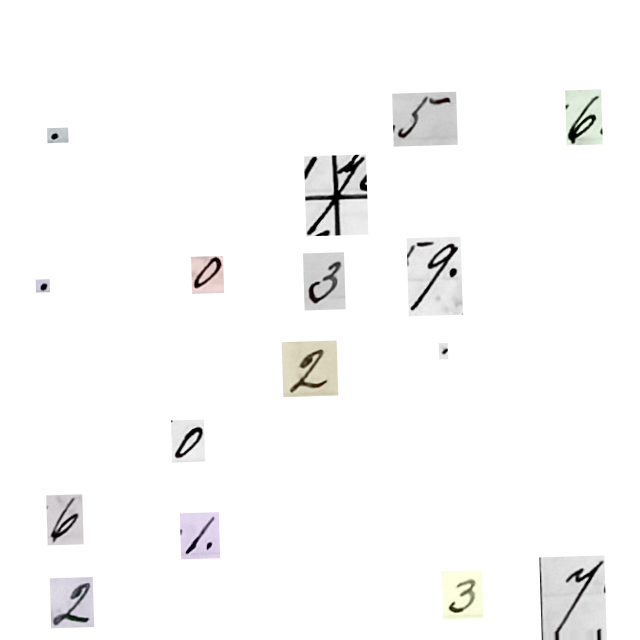 . 5 6
7
. 0 3 9.
2 .
0
6 1.
2 3 7